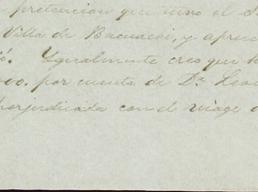 pretencion que tuvo el S
Villa de Bacuachi, y aprec
Igualmente creo que h
por cuenta de Dn. Leo
perjudicada con el viage a